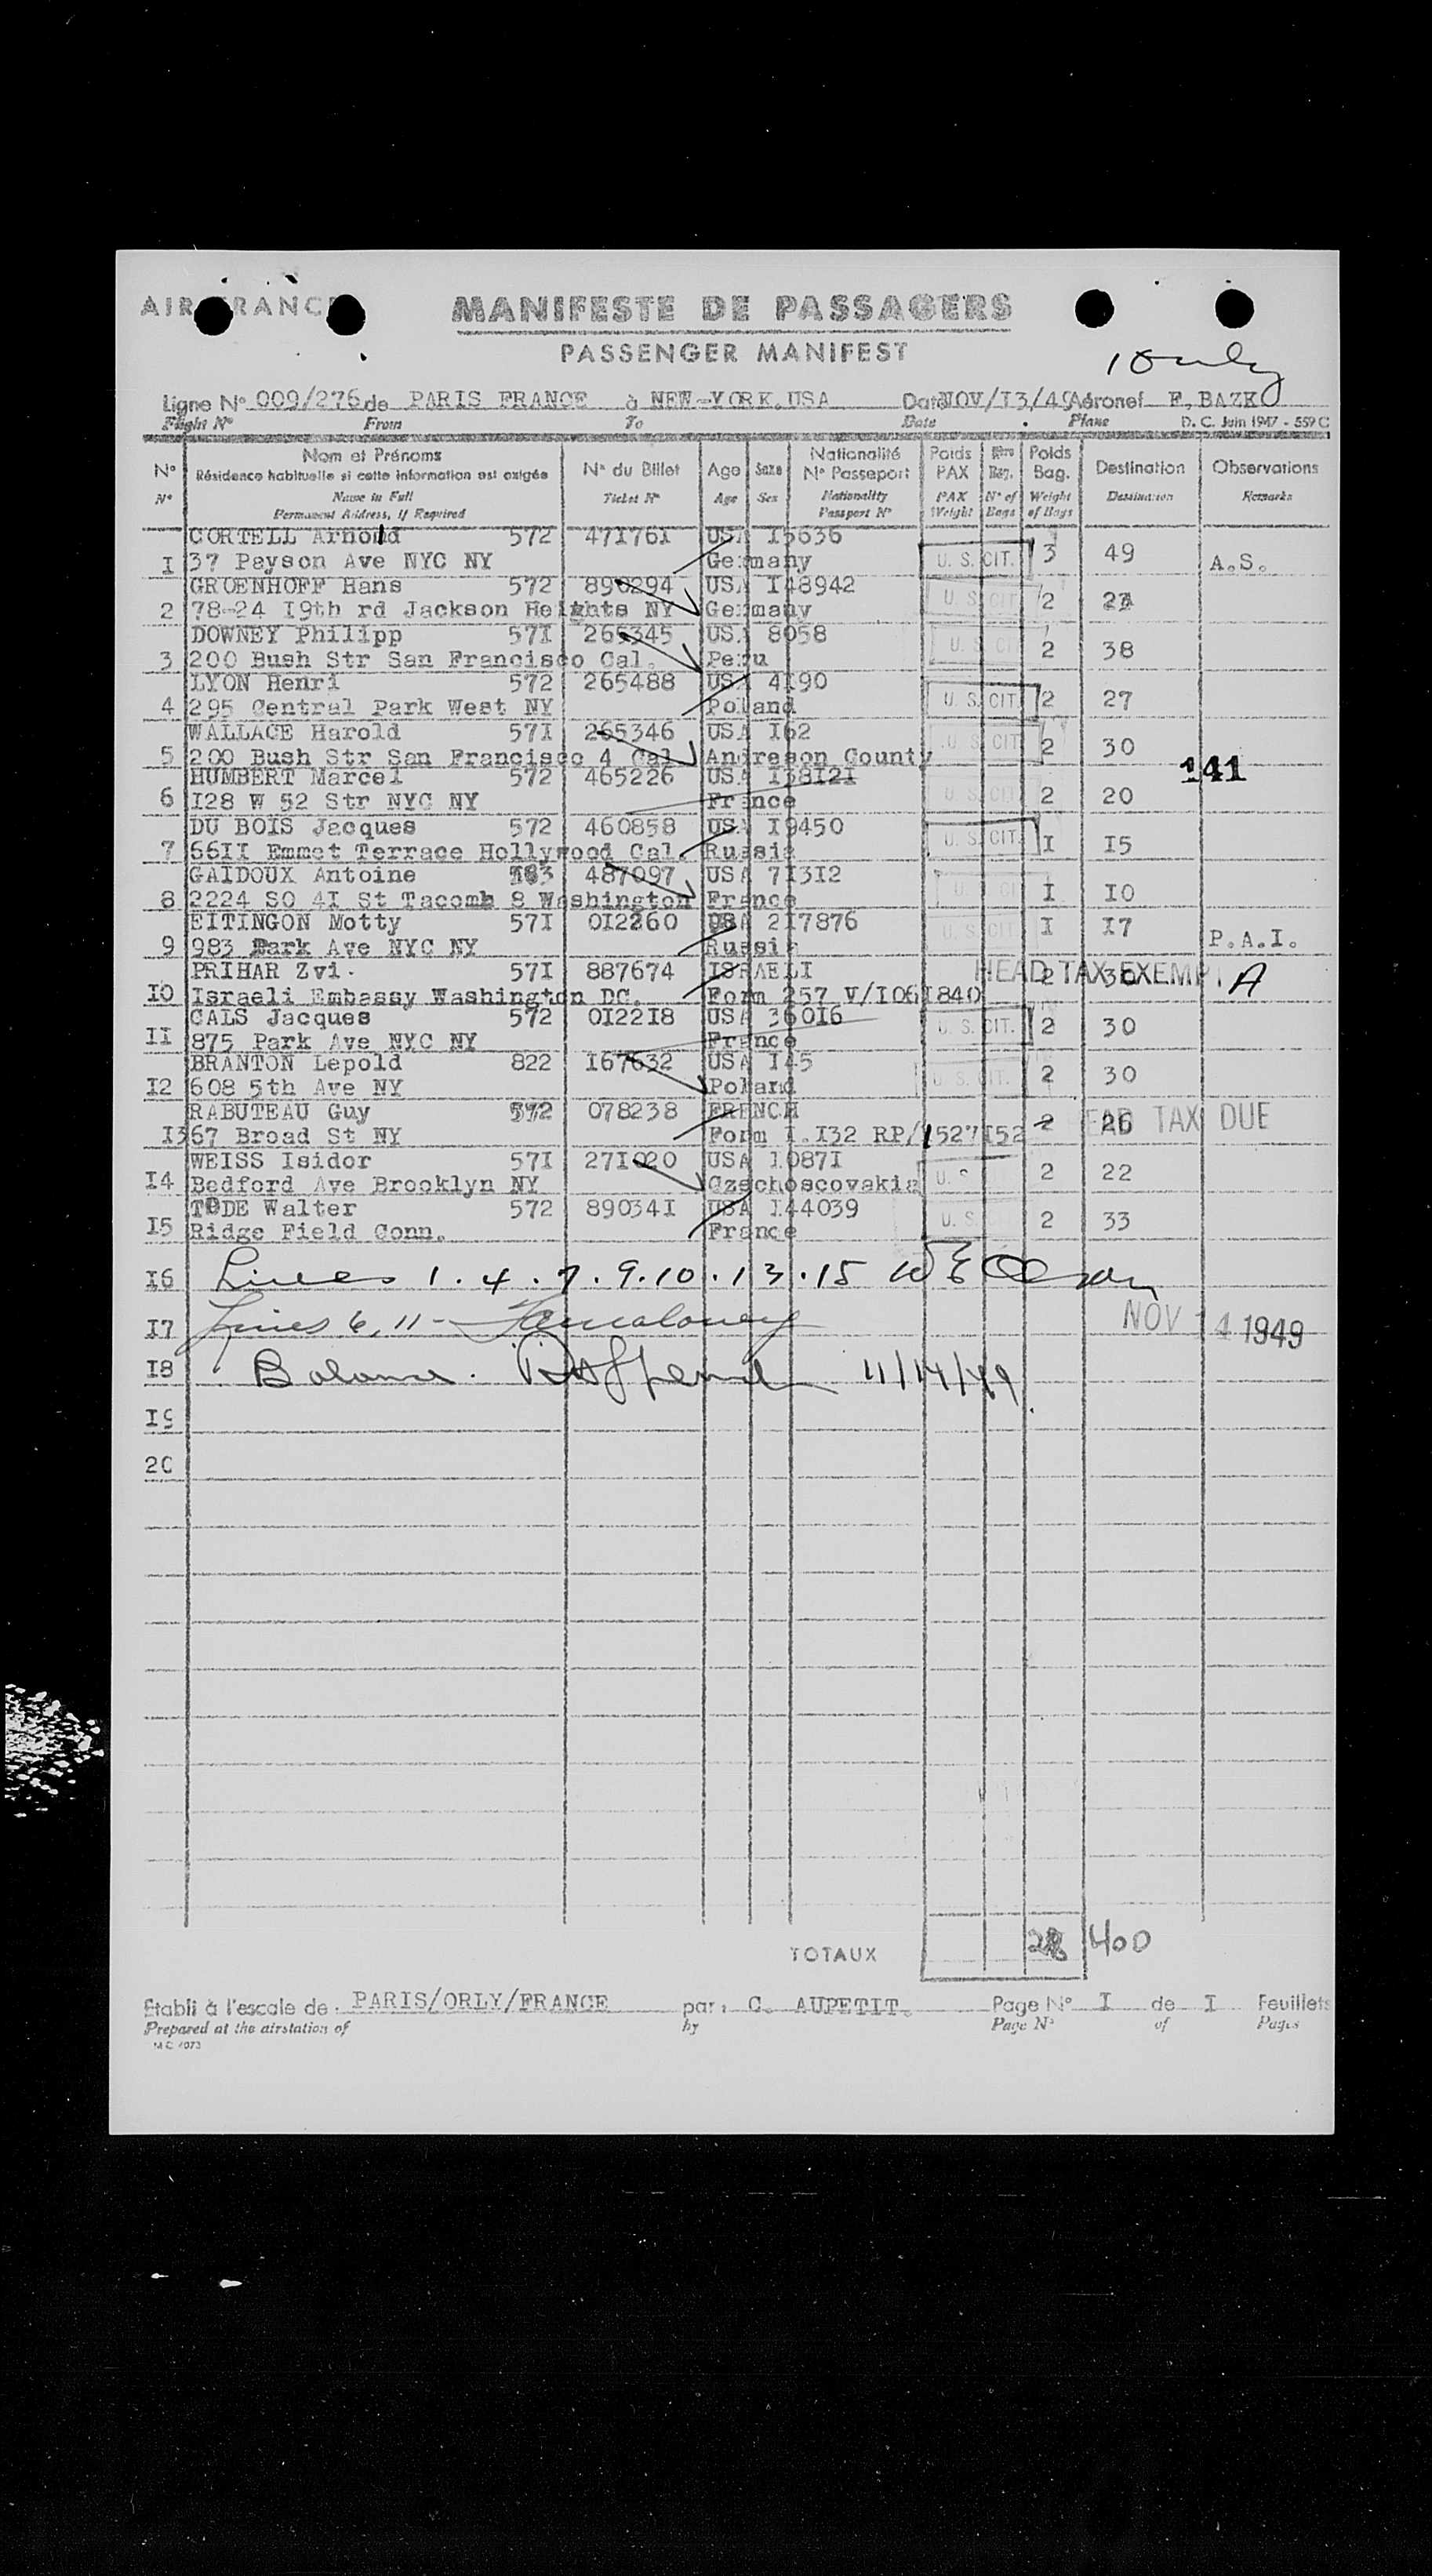 AIR FRANCE MANIFESTE DE PASSAGERS
PASSENGER MANIFEST
1 Only
Ligne N° 009/276 de PARIS FRANCE à NEW-YORK.USA Date NOV/I3/49 Aéronef F,BAZK
Flight N° From To Date Plane D. C. Juin 1947 - 559 C
N° Nom et Prénoms Résidence habituelle si cette information est exigée N° du Billet Age Sexe Nationalité N° Passeport Poids PAX Nbre Bag. Poids Bag. Destination Observations
N° Name in Full Permanent Address, if Required Ticket N° Age Sex Nationality Passport N° PAX Weight N° of Bags Weight of Bags Destination Remarks
CORTELL Arnold 572 47I76I USA I5636
I 37 Payson Ave NYC NY Germany U. S. CIT. 3 49 A.S.
GROENHOFF Hans 572 890294 USA I48942
2 78-24 I9th rd Jackson Heights NY Germany U. S. CIT 2
DOWNEY Philipp 57I 265345 USA 8058
3 200 Bush Str San Francisco Cal. Peru U. S. CI 2 38
LYON Henri 572 265488 USA 4I90
4 295 Central Park West NY Poland U. S. CIT. 2 27
WALLACE Harold 57I 265346 USA I62
5 200 Bush Str San Francisco 4 Cal Andreson County U. S. CIT. 2 30
141
HUMBERT Marcel 572 465226 USA I38I2I
6 I28 W 52 Str NYC NY France U. S. CIT 2 20
DU BOIS Jacques 572 460858 USA I9450
7 66II Emmet Terrace Hollywood Cal. Russia U. S. CIT. I I5
GAIDOUX Antoine 487097 USA 7I3I2
8 2224 SO 4I St Tacomb 8 Washington France U. CI I I0
EITINGON Motty 57I 0I2260 USA 2I7876
9 983 Park Ave NYC NY Russia U. S. CIT I I7 P.A.I.
PRIHAR Zvi. 57I 887674 ISRAELI HEAD TAX EXEMPT 2 30 A
I0 Israeli Embassy Washington DC. Form 257 V/I06I840
CALS Jacques 572 0I22I8 USA 360I6
II 875 Park Ave NYC NY France U. S. CIT. 2 30
BRANTON Lepold 822 I67632 USA I45
I2 608 5th Ave NY Poland U. S. CIT. 2 30
RABUTEAU Guy 572 078238 FRENCH
I3 67 Broad St NY Form I.I32 RP/I527I52 2 26 HEAD TAX DUE
WEISS Isidor 57I 27I020 USA I087I
I4 Bedford Ave Brooklyn NY Czechoscovakia U. S 2 22
TODE Walter 572 89034I USA I44039
I5 Ridge Field Conn. France U. S. 2 33
I6 Lines 1.4.7.9.10.13.15 W E Olson
I7 Lines 6, 11 - NOV 14 1949
I8 Balance. 11/14/49
I9
20
TOTAUX 28 400
Etabli à l'escale de PARIS/ORLY/FRANCE par: C. AUPETIT. Page N° I de I Feuillets
Prepared at the airstation of by Page N° of Pages
M C 4073